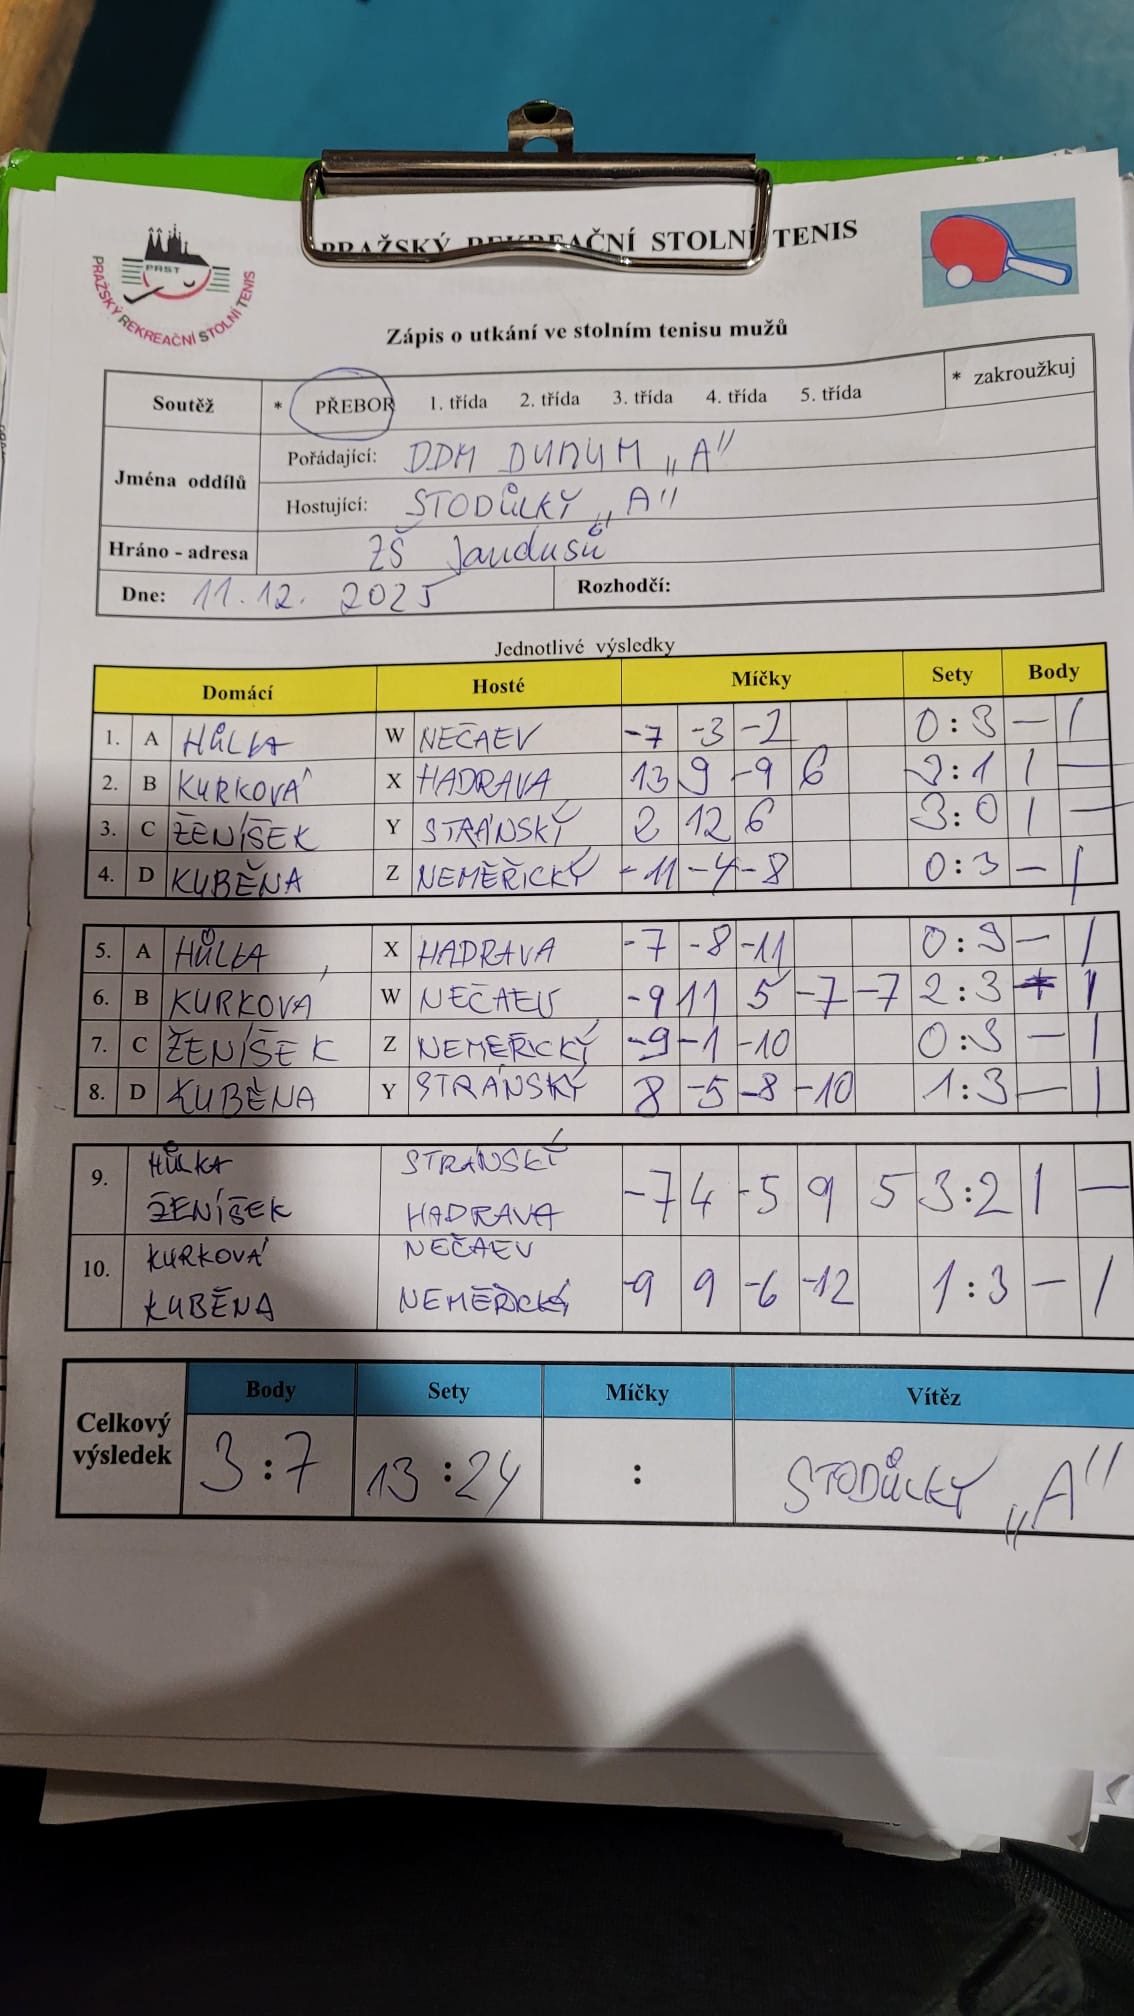 PRAŽSKÝ REKREAČNÍ STOLNÍ TENIS
PRST
PRAŽSKÝ REKREAČNÍ STOLNÍ TENIS
Zápis o utkání ve stolním tenisu mužů
Soutěž * PŘEBOR 1. třída 2. třída 3. třída 4. třída 5. třída * zakroužkuj
Jména oddílů
Pořádající: DDM DUHUM „A"
Hostující: STODŮLKY „A"
Hráno - adresa ZŠ Jandusů
Dne: 11.12. 2025 Rozhodčí:
Jednotlivé výsledky
Domácí Hosté Míčky Sety Body
1. A HŮLKA W NEČAEV -7 -3 -2 0:3 — 1
2. B KURKOVÁ X HADRAVA 13 9 -9 6 3:1 1 —
3. C ŽENÍŠEK Y STRÁNSKÝ 2 12 6 3:0 1 —
4. D KUBĚNA Z NEMĚŘICKÝ -11 -4 -8 0:3 — 1
5. A HŮLKA X HADRAVA -7 -8 -11 0:3 — 1
6. B KURKOVÁ W NEČAEV -9 11 5 -7 -7 2:3 — 1
7. C ŽENÍŠEK Z NEMĚŘICKÝ -9 -1 -10 0:3 — 1
8. D KUBĚNA Y STRÁNSKÝ 8 -5 -8 -10 1:3 — 1
9. HŮLKA STRÁNSKÝ
ŽENÍŠEK HADRAVA -7 4 -5 9 5 3:2 1 —
10. KURKOVÁ NEČAEV
KUBĚNA NEMĚŘICKÝ -9 9 -6 -12 1:3 — 1
Celkový výsledek
Body Sety Míčky Vítěz
3:7 13:24 : STODŮLKY „A"